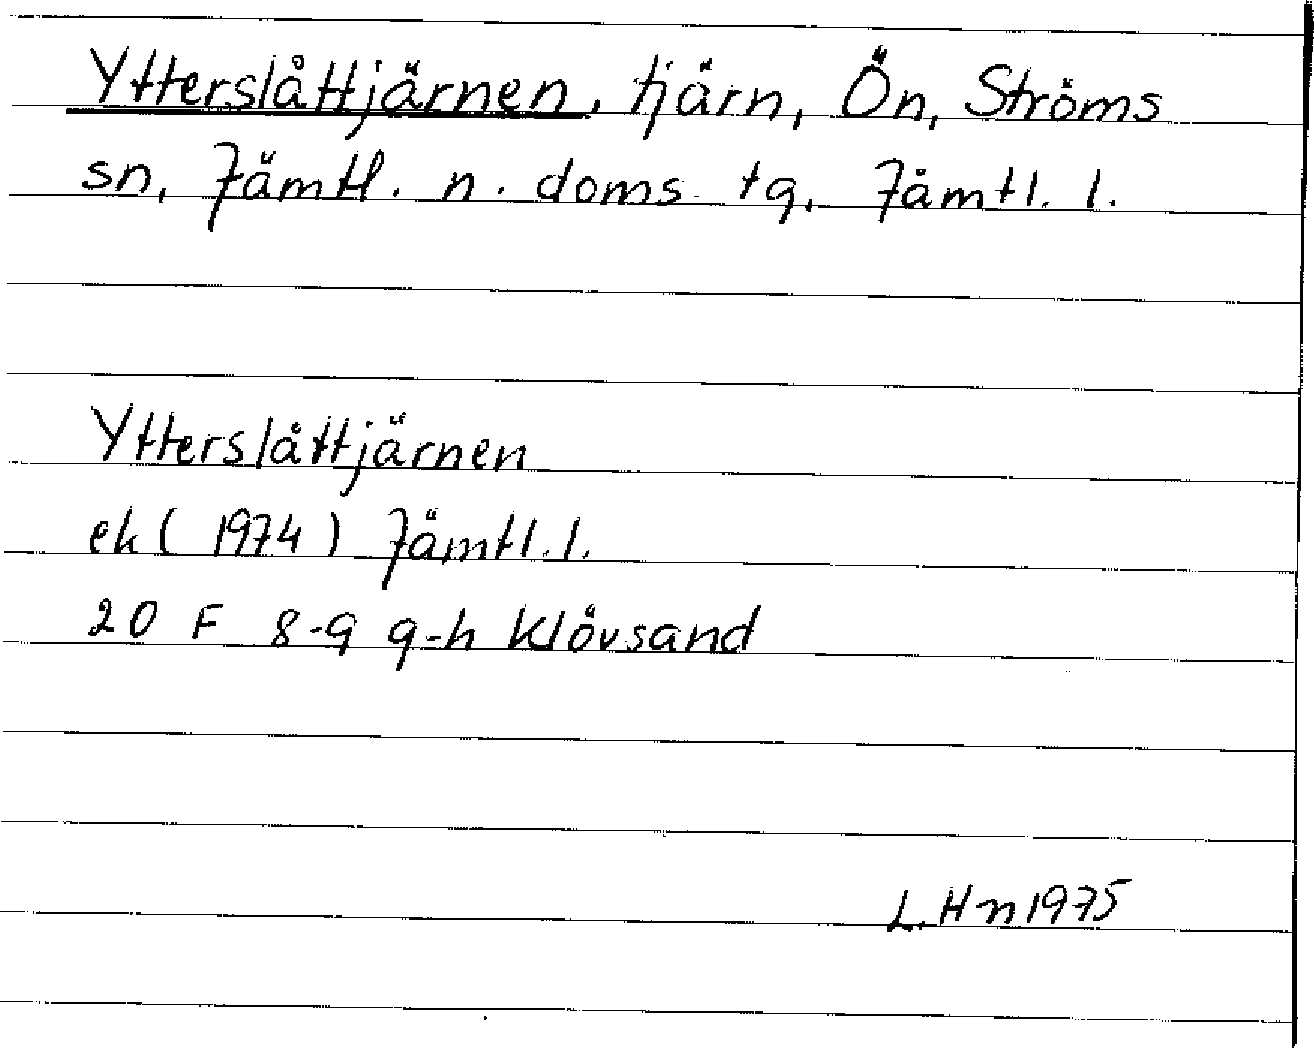 Ytterslåttjärnen, tjärn, Ön, Ströms
sn, Jämtl. n. doms. tg, Jämtl. l.
Ytterslåttjärnen
ek ( 1974 ) Jämtl. l.
20 F 8-9 g-h Klövsand
L. Hn 1975